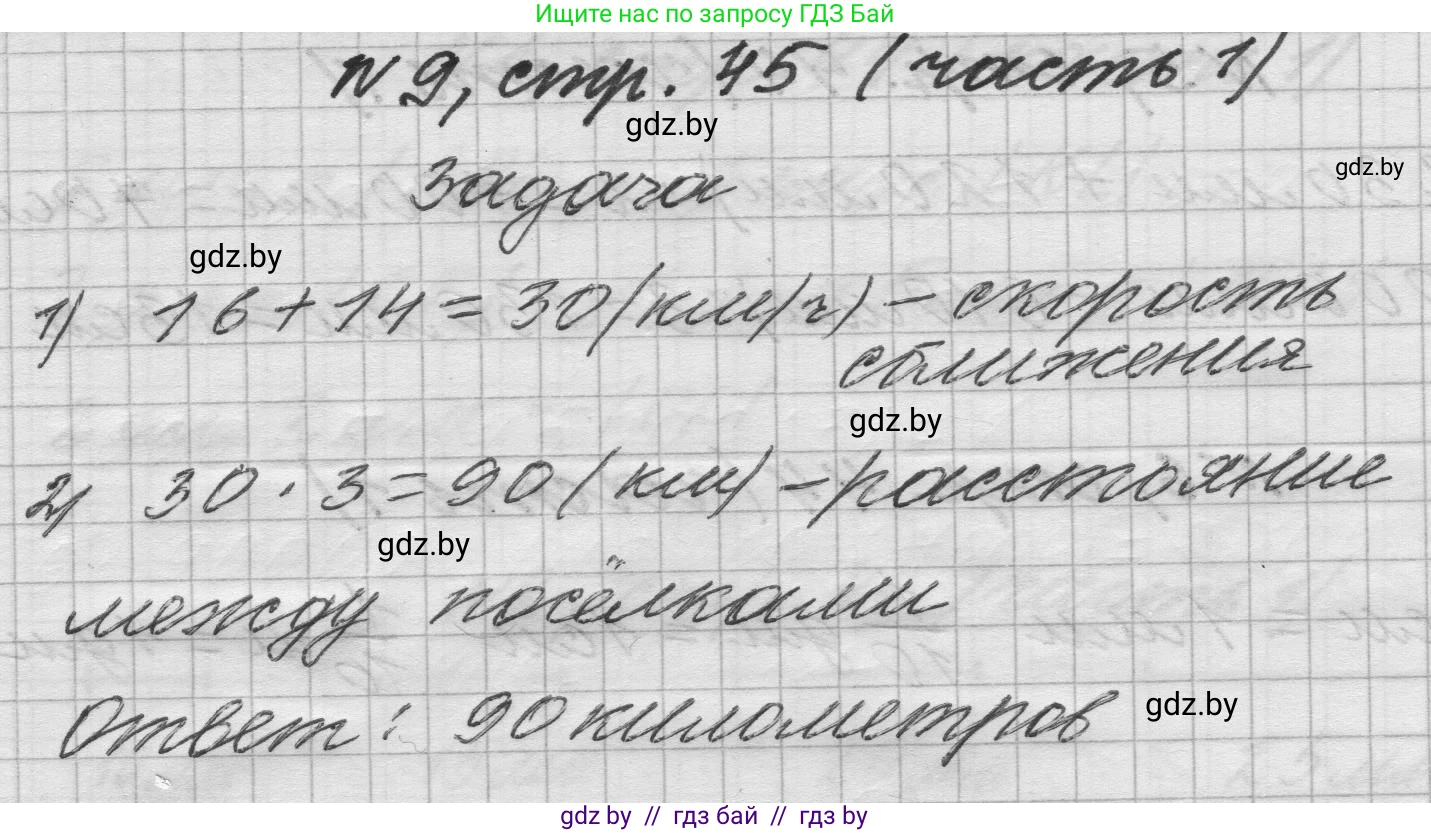 Ищите нас по запросу ГДЗ Бай
N 9, стр. 45 (часть 1)
gdz.by
Задача
gdz.by
gdz.by
1) 16 + 14 = 30 (км/ч) – скорость
сближения
gdz.by
2) 30 · 3 = 90 (км) – расстояние
gdz.by
между посёлками
Ответ: 90 километров
gdz.by
gdz.by // гдз бай // гдз by